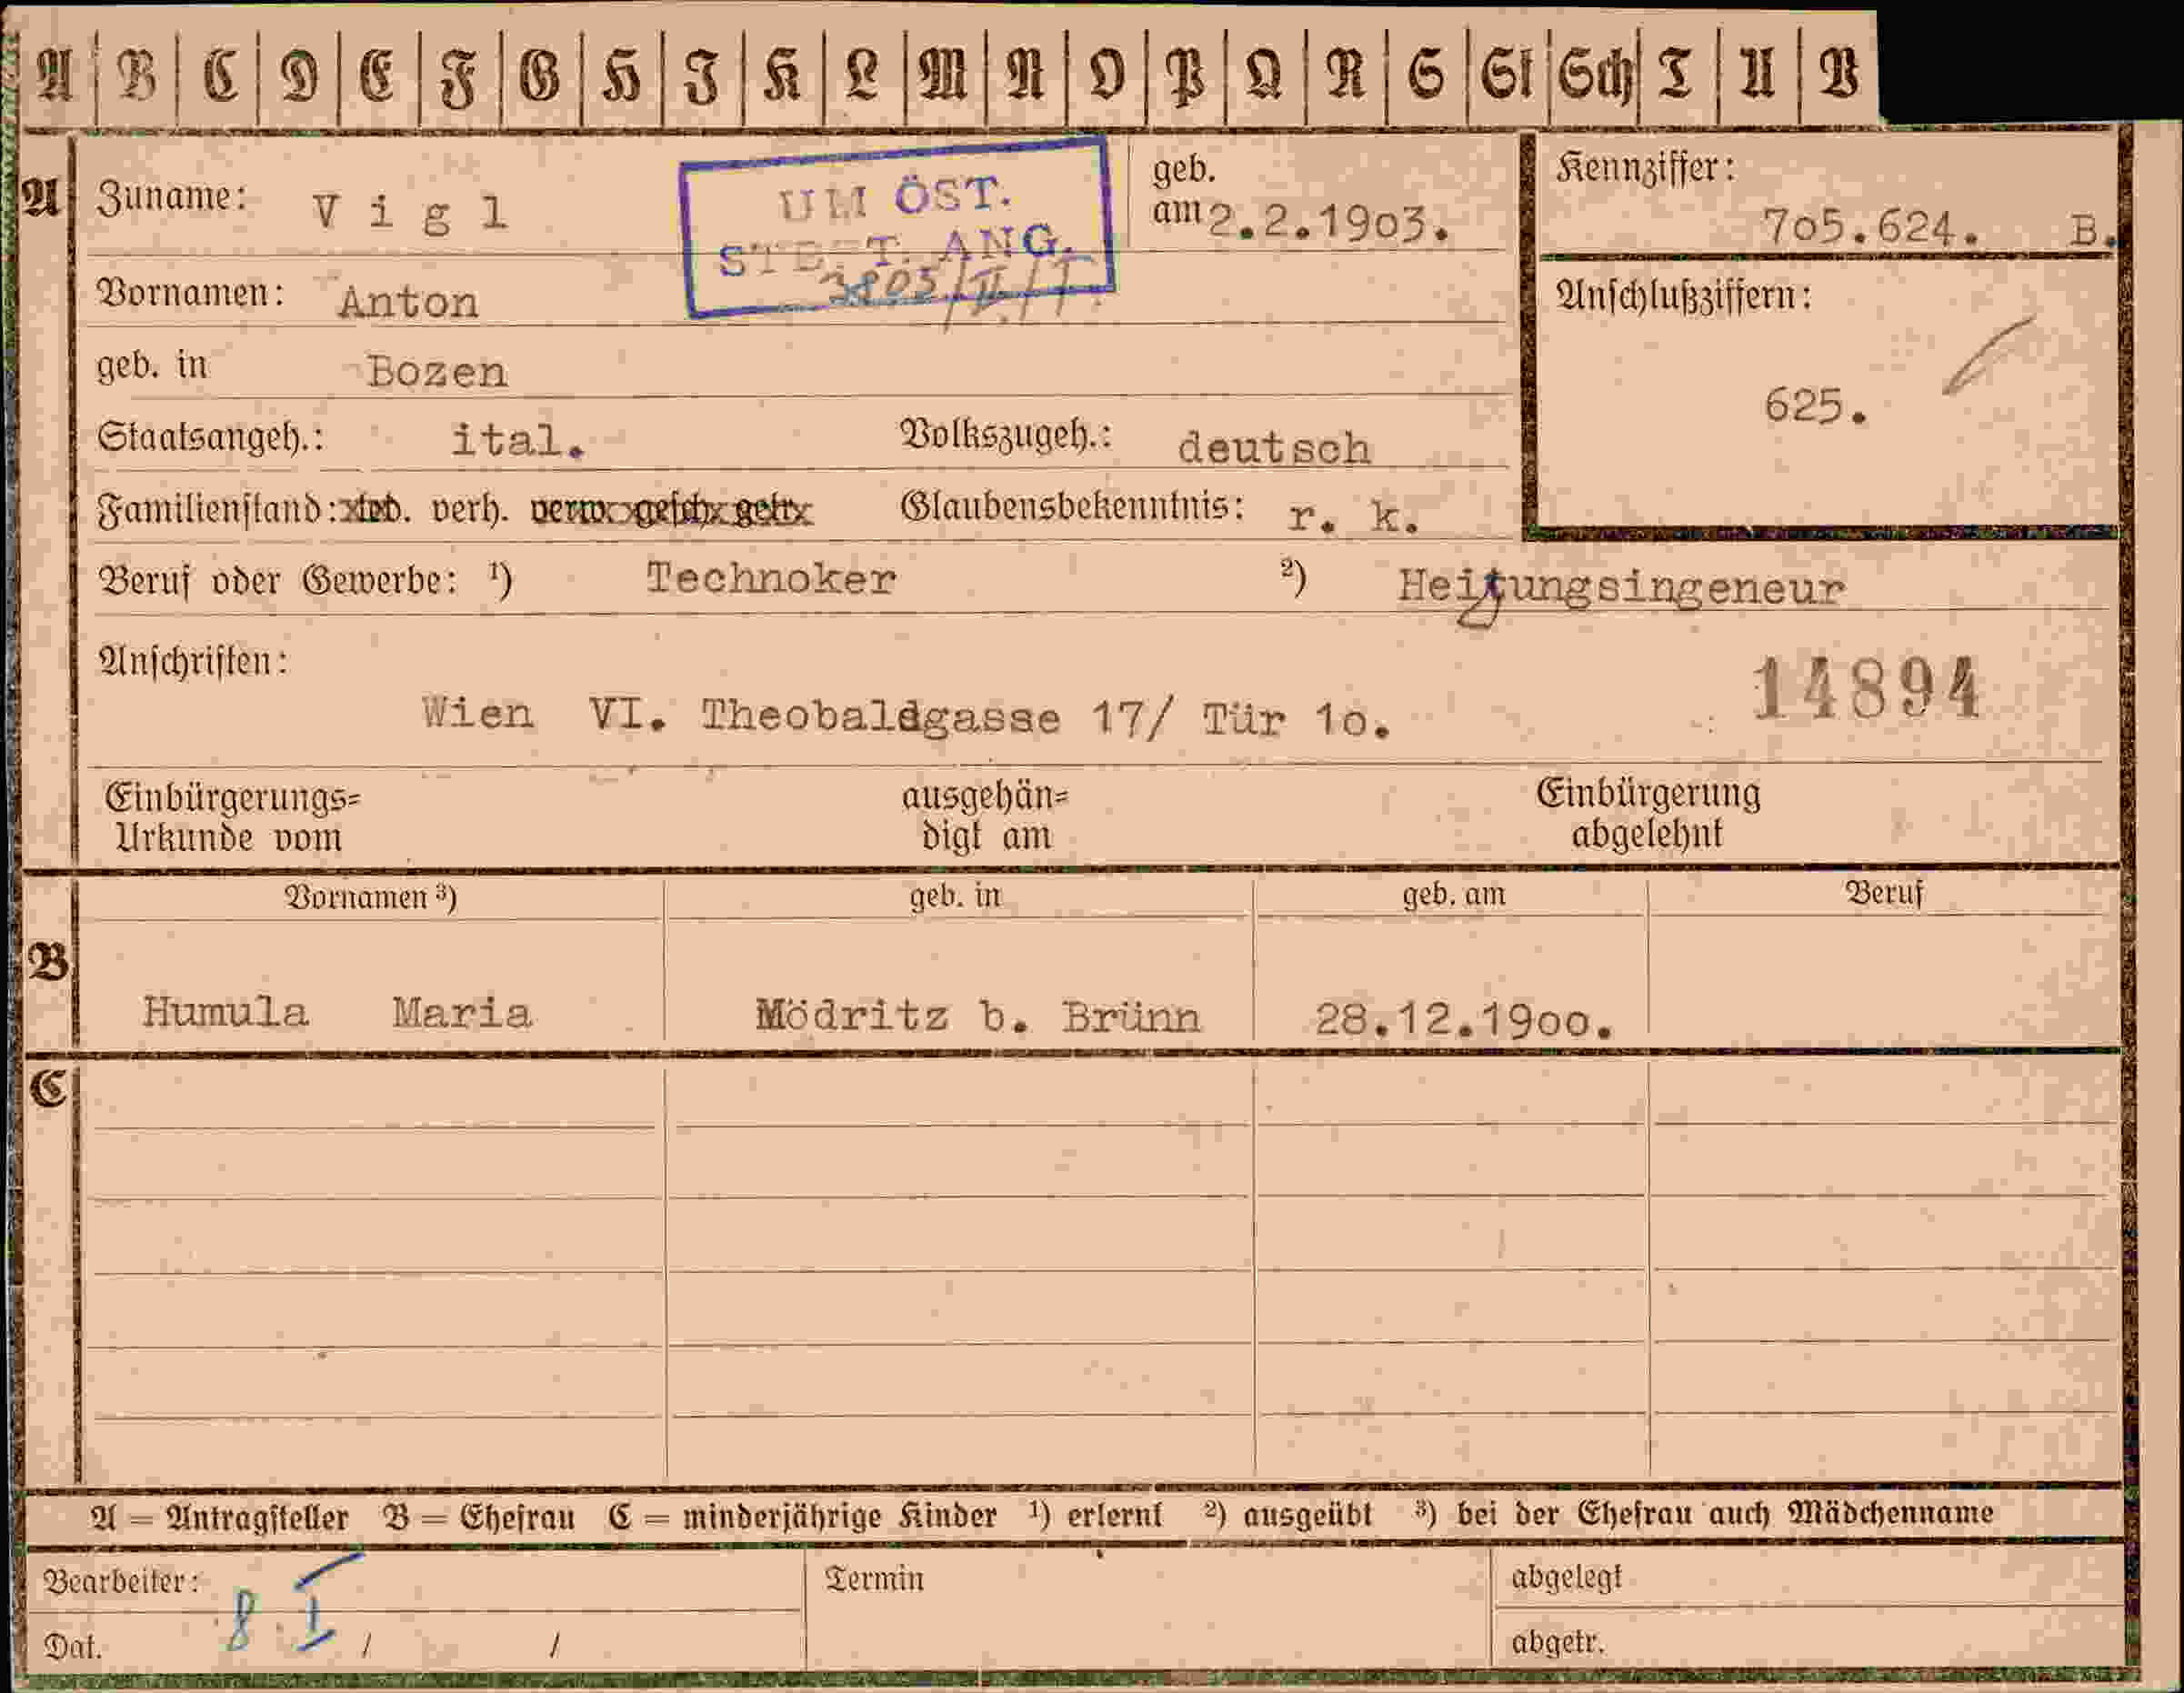 A B C D E F G H I K L M N O P Q R S St Sch T U V
A
Zuname: Vigl
UM ÖST.
ANG.
geb.
am 2.2.1903.
Kennziffer:
705.624. B.
Vornamen: Anton
Anschlußziffern:
625.
geb. in Bozen
Staatsangeh.: ital. Volkszugeh.: deutsch
Familienstand: led. verh. verw. gesch. getr. Glaubensbekenntnis: r. k.
Beruf oder Gewerbe: ¹) Technoker ²) Heizungsingeneur
Anschriften:
14894
Wien VI. Theobaldgasse 17/ Tür 1o.
Einbürgerungs= ausgehän= Einbürgerung
Urkunde vom digt am abgelehnt
B
Vornamen ³) geb. in geb. am Beruf
Humula Maria Mödritz b. Brünn 28.12.19oo.
C
A = Antragsteller B = Ehefrau C = minderjährige Kinder ¹) erlernt ²) ausgeübt ³) bei der Ehefrau auch Mädchenname
Bearbeiter: Termin abgelegt
8 I
Dat. / / abgetr.